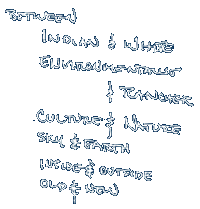 BETWEEN
INDIAN & WHITE
ENVIRONMENTALIST
& RANCHER
CULTURE & NATURE
SKY & EARTH
INSIDE & OUTSIDE
OLD & NEW